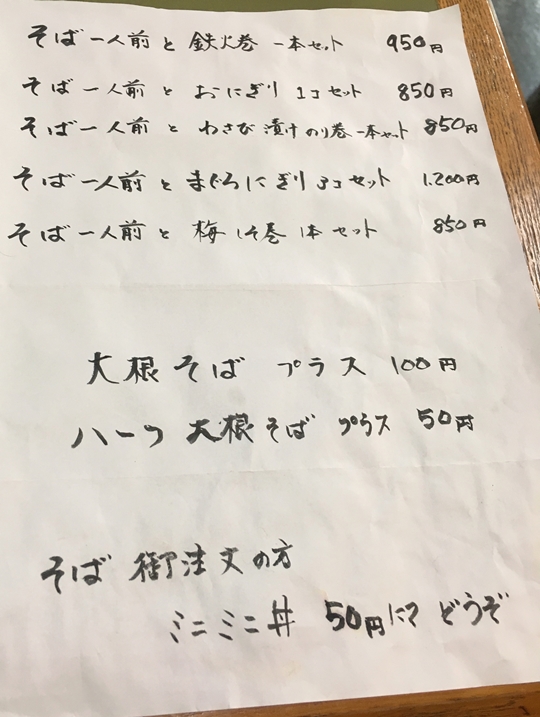 そば一人前と 鉄火巻 一本セット 950円
そば一人前と おにぎり 1コセット 850円
そば一人前と わさび漬けのり巻一本セット 850円
そば一人前と まぐろにぎり 3コセット 1.200円
そば一人前と 梅しそ巻 1本セット 850円
大根そば プラス 100円
ハーフ 大根そば プラス 50円
そば 御注文の方
ミニミニ丼 50円にて どうぞ